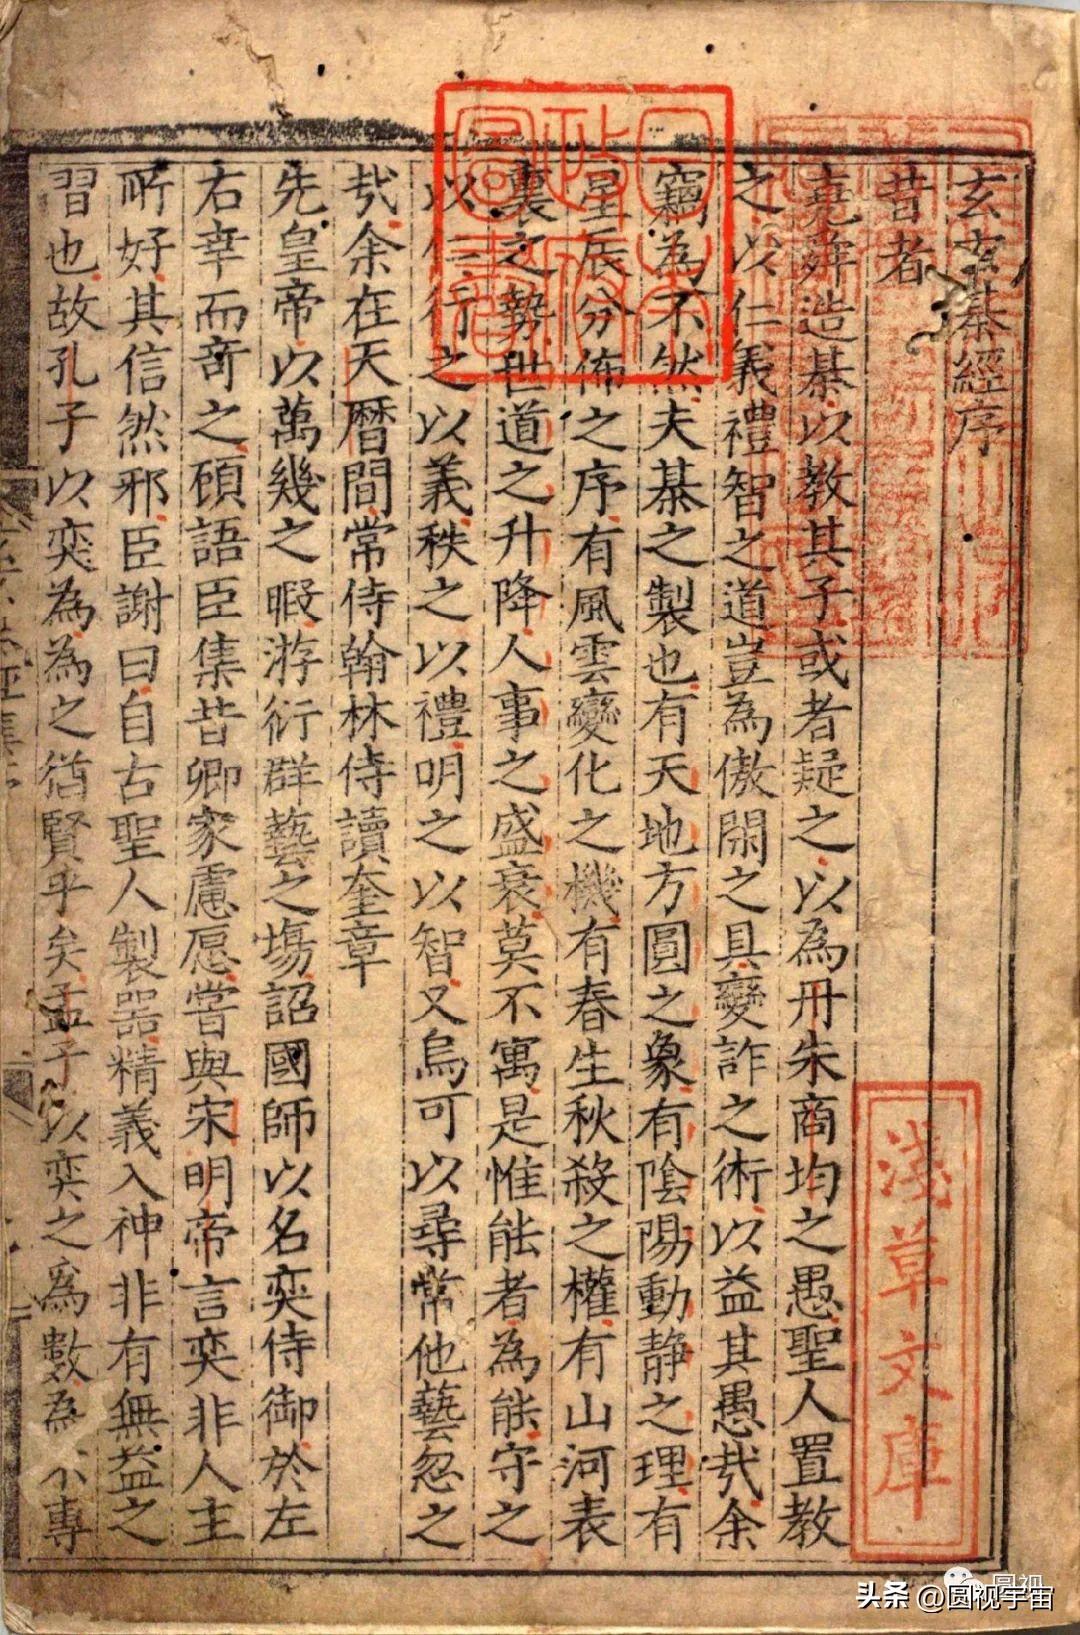 玄玄棊經序
昔者
堯舜造棊以教其子或者疑之以為丹朱商均之愚聖人置教
之以仁義禮智之道豈為傲閑之具變詐之術以益其愚㢤余
竊為不然夫棊之製也有天地方圓之象有陰陽動静之理有
星辰分佈之序有風雲變化之機有春生秋殺之權有山河表
裏之勢世道之升降人事之盛衰莫不寓是惟能者為能守之
以仁行之以義秩之以禮明之以智又烏可以尋常他藝忽之
㢤余在天曆間常侍翰林侍讀奎章
先皇帝以萬幾之暇游衍群藝之塲詔國師以名奕侍御於左
右幸而奇之顧語臣集昔卿家慮愿嘗與宋明帝言奕非人主
所好其信然邪臣謝曰自古聖人製器精義入神非有無益之
習也故孔子以奕為為之猶賢乎矣孟子以奕之為數為小專
淺草文庫
圖書
头条 @圆视宇宙
圆视